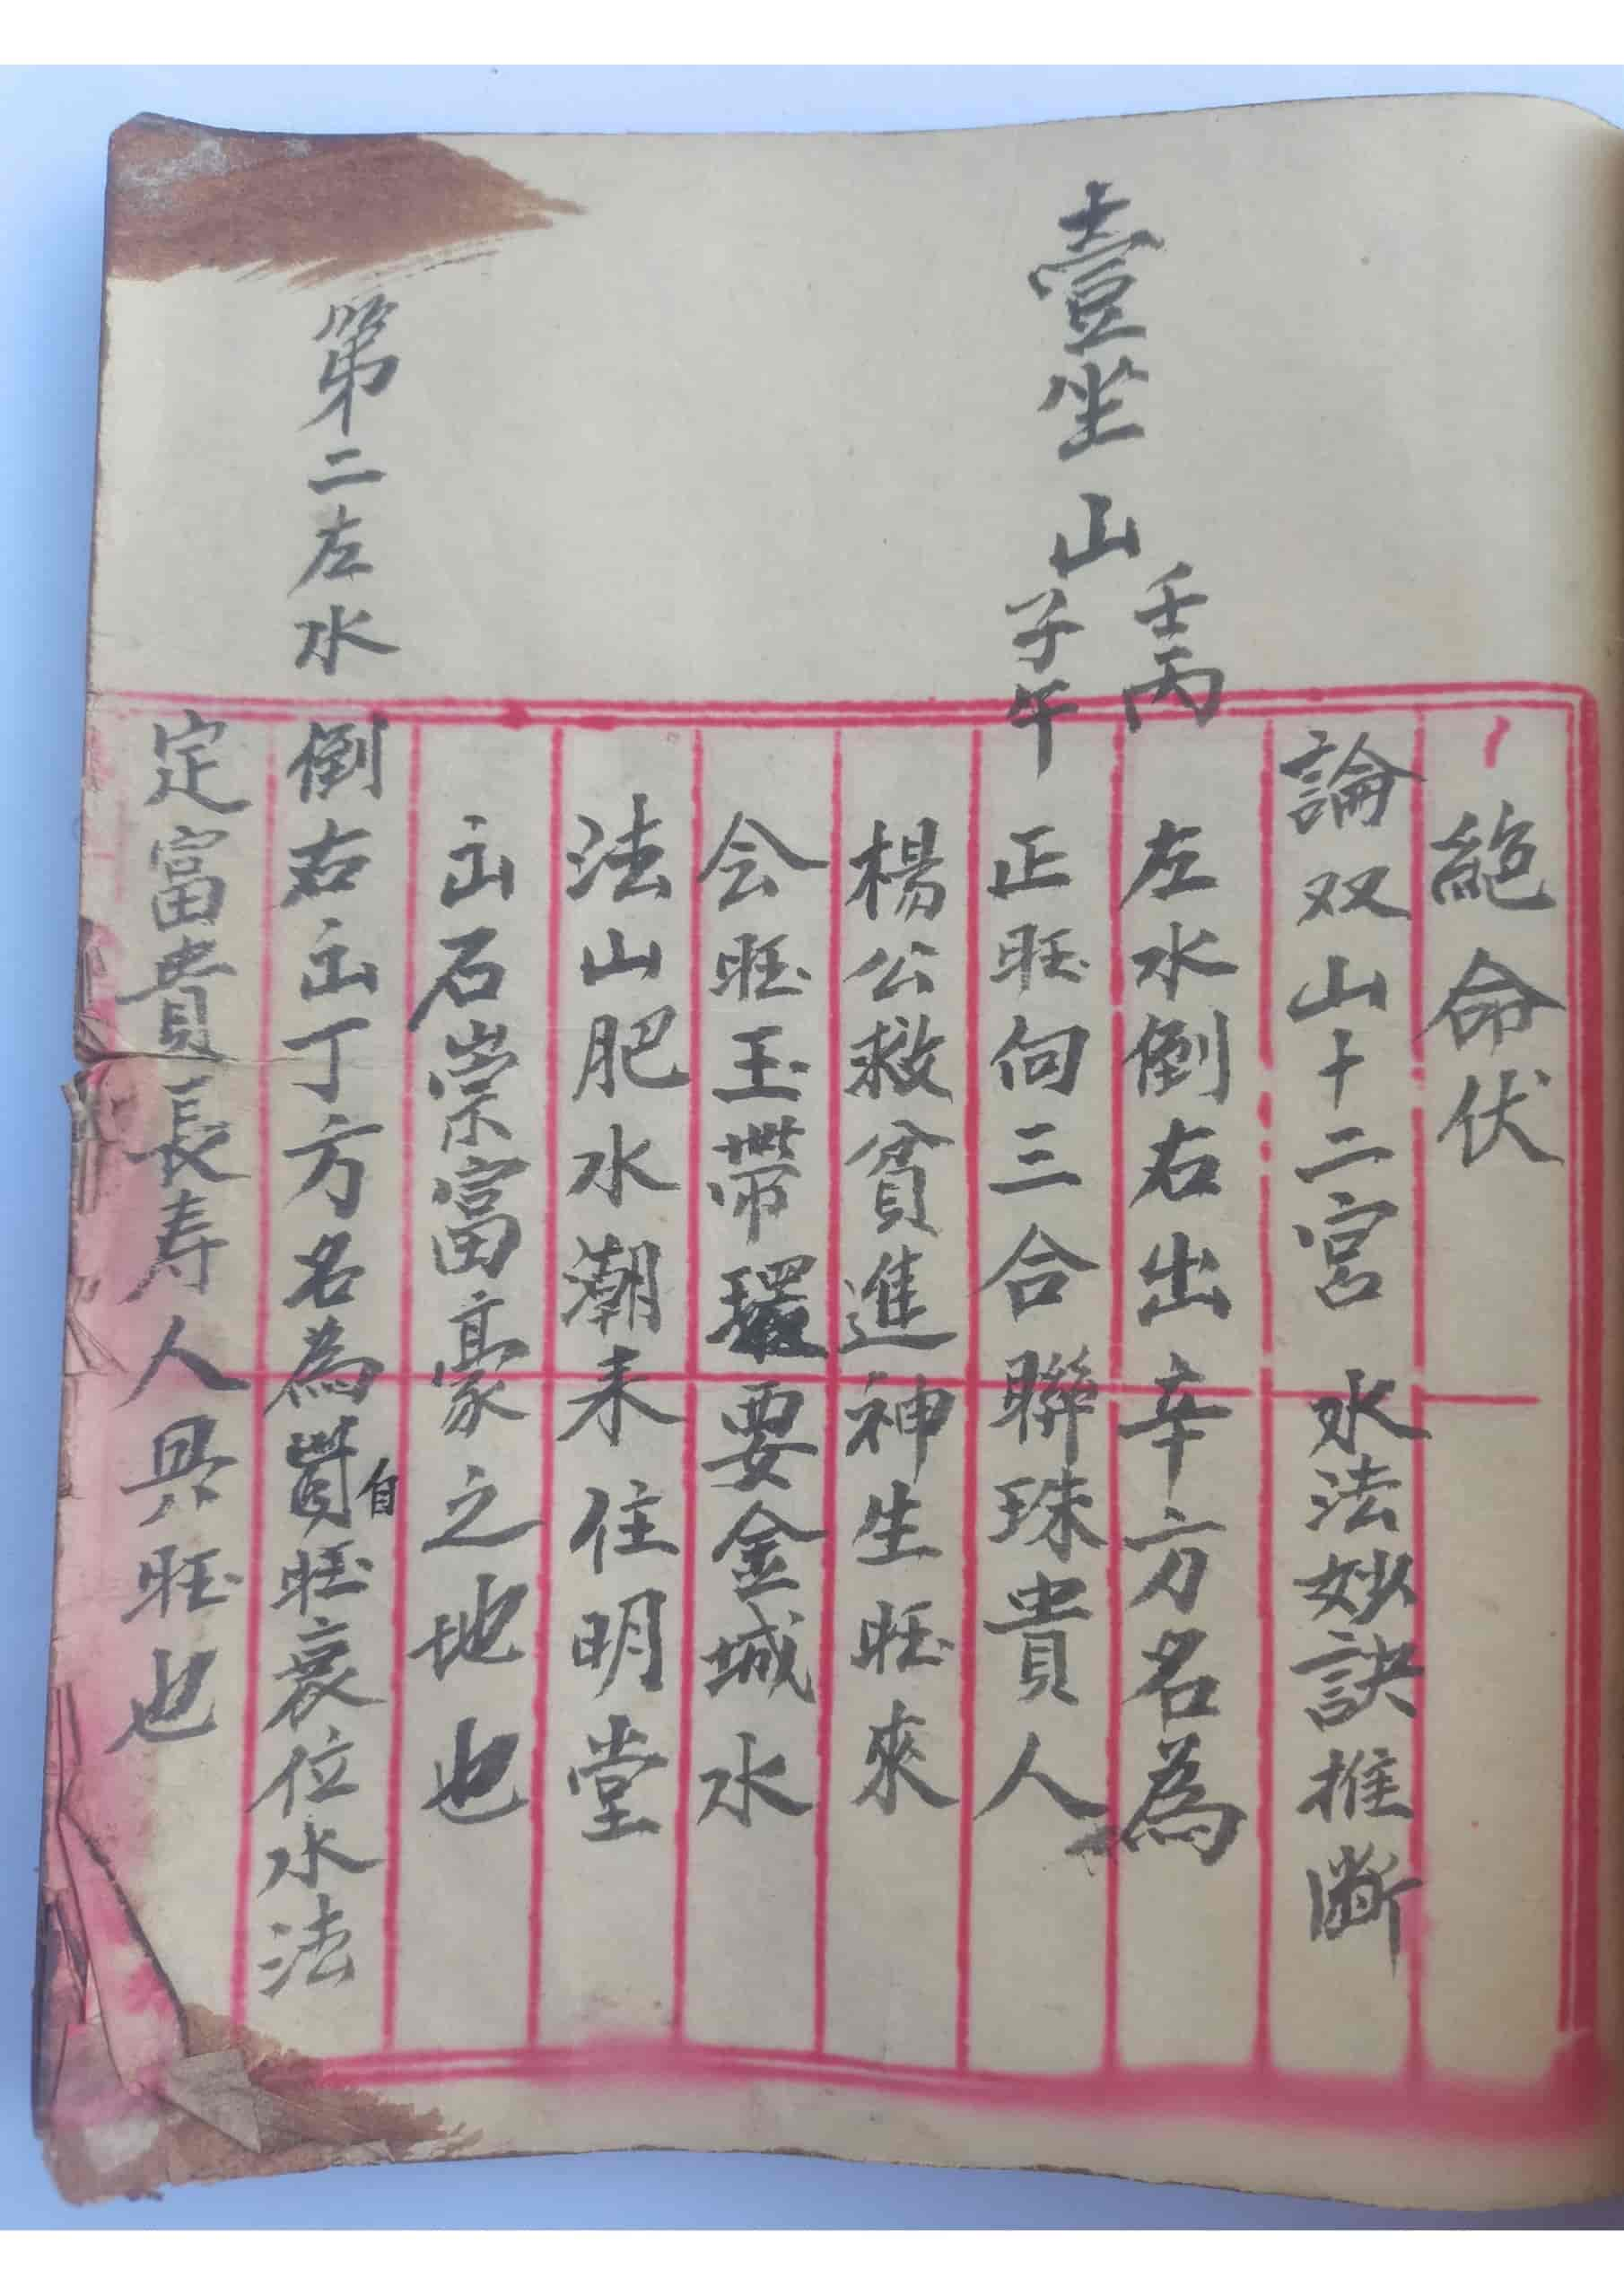 絕命伏
論双山十二宮 水法妙訣推斷
壹坐山
壬丙
子午
左水倒右出辛方名為
正旺向三合聯珠貴人
楊公救貧進神生旺來
会旺玉帶環要金城水
法山肥水潮来住明堂
出石崇富豪之地也
第二左水
倒右出丁方名為自旺衰位水法
定富貴長寿人具旺也